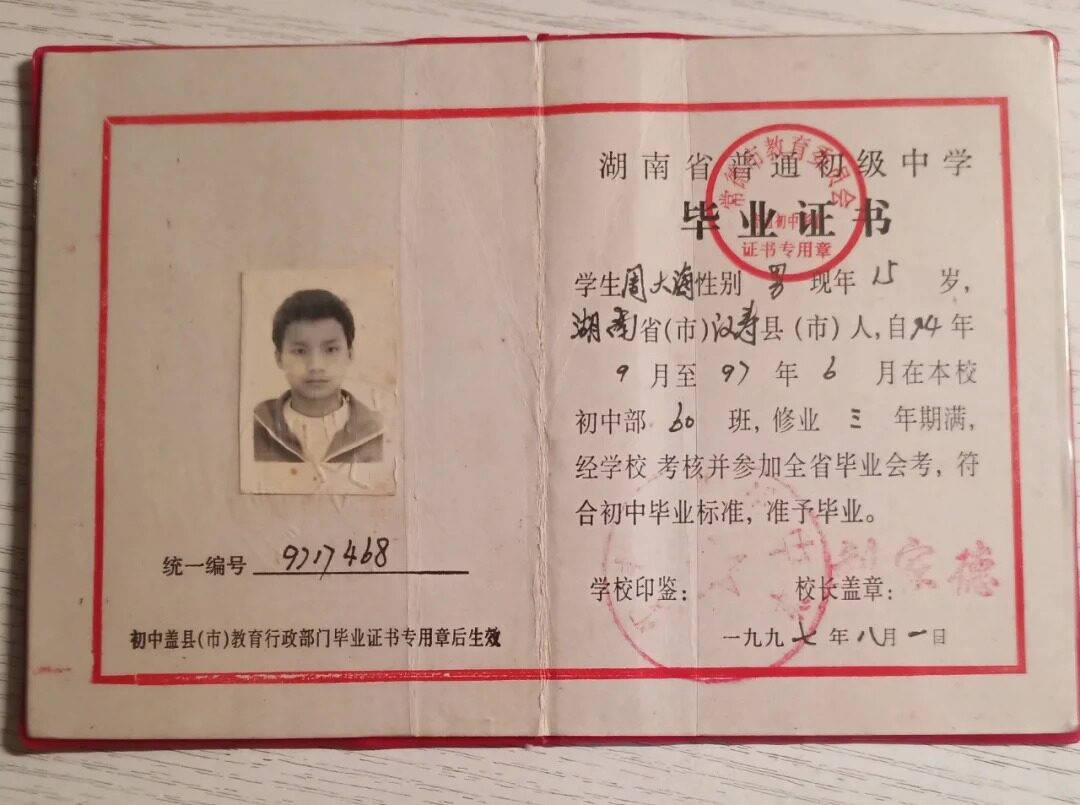 统一编号 9717468
初中盖县(市)教育行政部门毕业证书专用章后生效
常德市教育委员会
证书专用章
湖南省普通初级中学
毕业证书
学生周大海性别 男 现年 15 岁,
湖南省(市)汉寿县(市)人,自94年
9月至97年6月在本校
初中部 60 班,修业 三 年期满,
经学校考核并参加全省毕业会考,符
合初中毕业标准,准予毕业。
学校印鉴: 校长盖章:
刘宗德
一九九七年八月一日